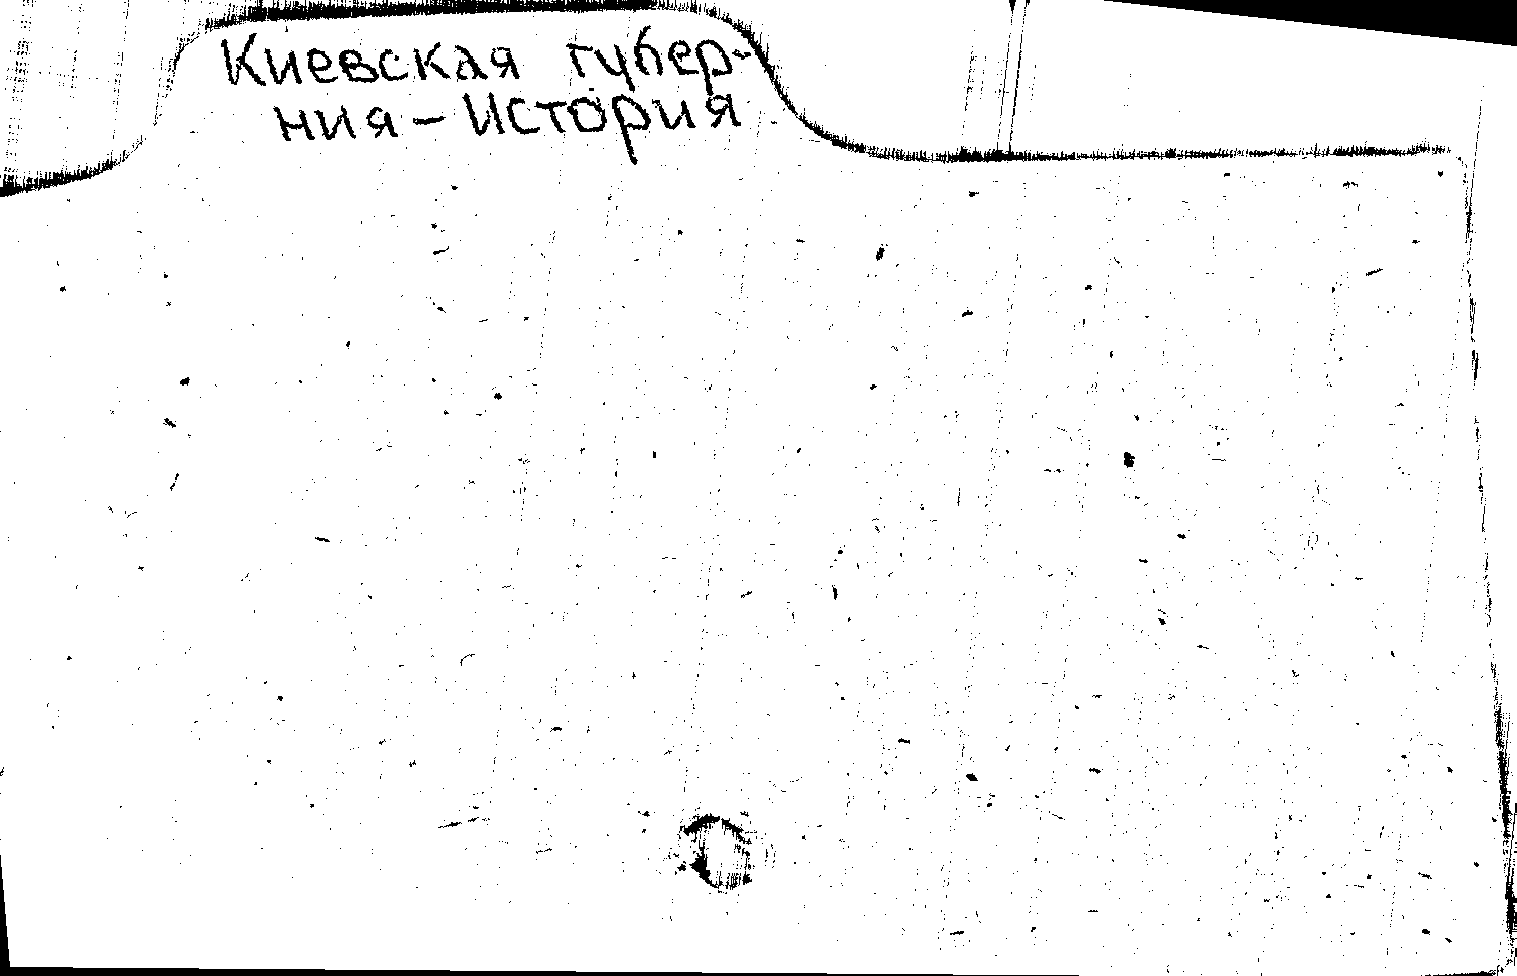 Киевская губер-
ния – История